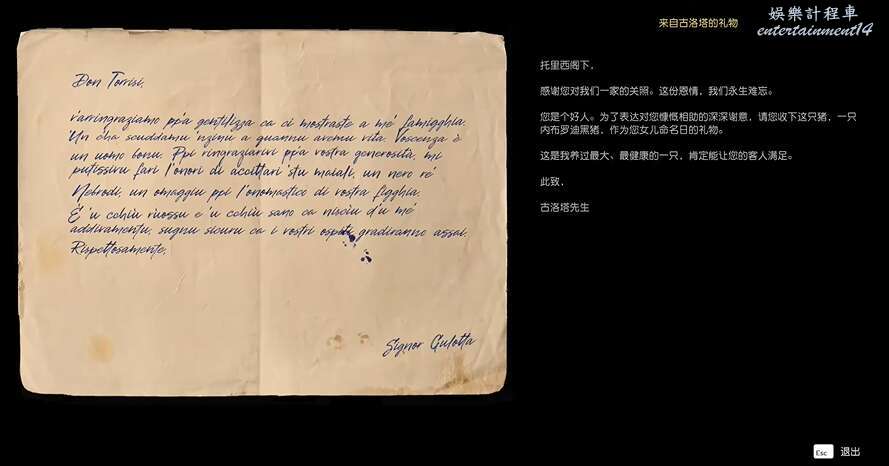 来自古洛塔的礼物
娛樂計程車
entertainment14
Don Torrisi,
v'arringraziamo pp'a gentilizza ca ci mostraste a me' famigghia.
Un cha scuddamu nzinu a quannu avemu vita. Voscenza è
un uomo bonu. Ppi ringraziarivi pp'a vostra generosità, mi
putissivu fari l'onori di accittari 'stu maiali, un nero re'
Nebrodi, un omaggiu ppi l'onomastico di vostra figghia.
È 'u cchiù ruossu e 'u cchiù sano ca nisciu d'u me'
addivamentu, sugnu sicuru ca i vostri ospiti gradiranno assai.
Rispettosamente,
Signor Gulotta
托里西阁下,
感谢您对我们一家的关照。这份恩情，我们永生难忘。
您是个好人。为了表达对您慷慨相助的深深谢意，请您收下这只猪，一只
内布罗迪黑猪，作为您女儿命名日的礼物。
这是我养过最大、最健康的一只，肯定能让您的客人满足。
此致,
古洛塔先生
Esc 退出